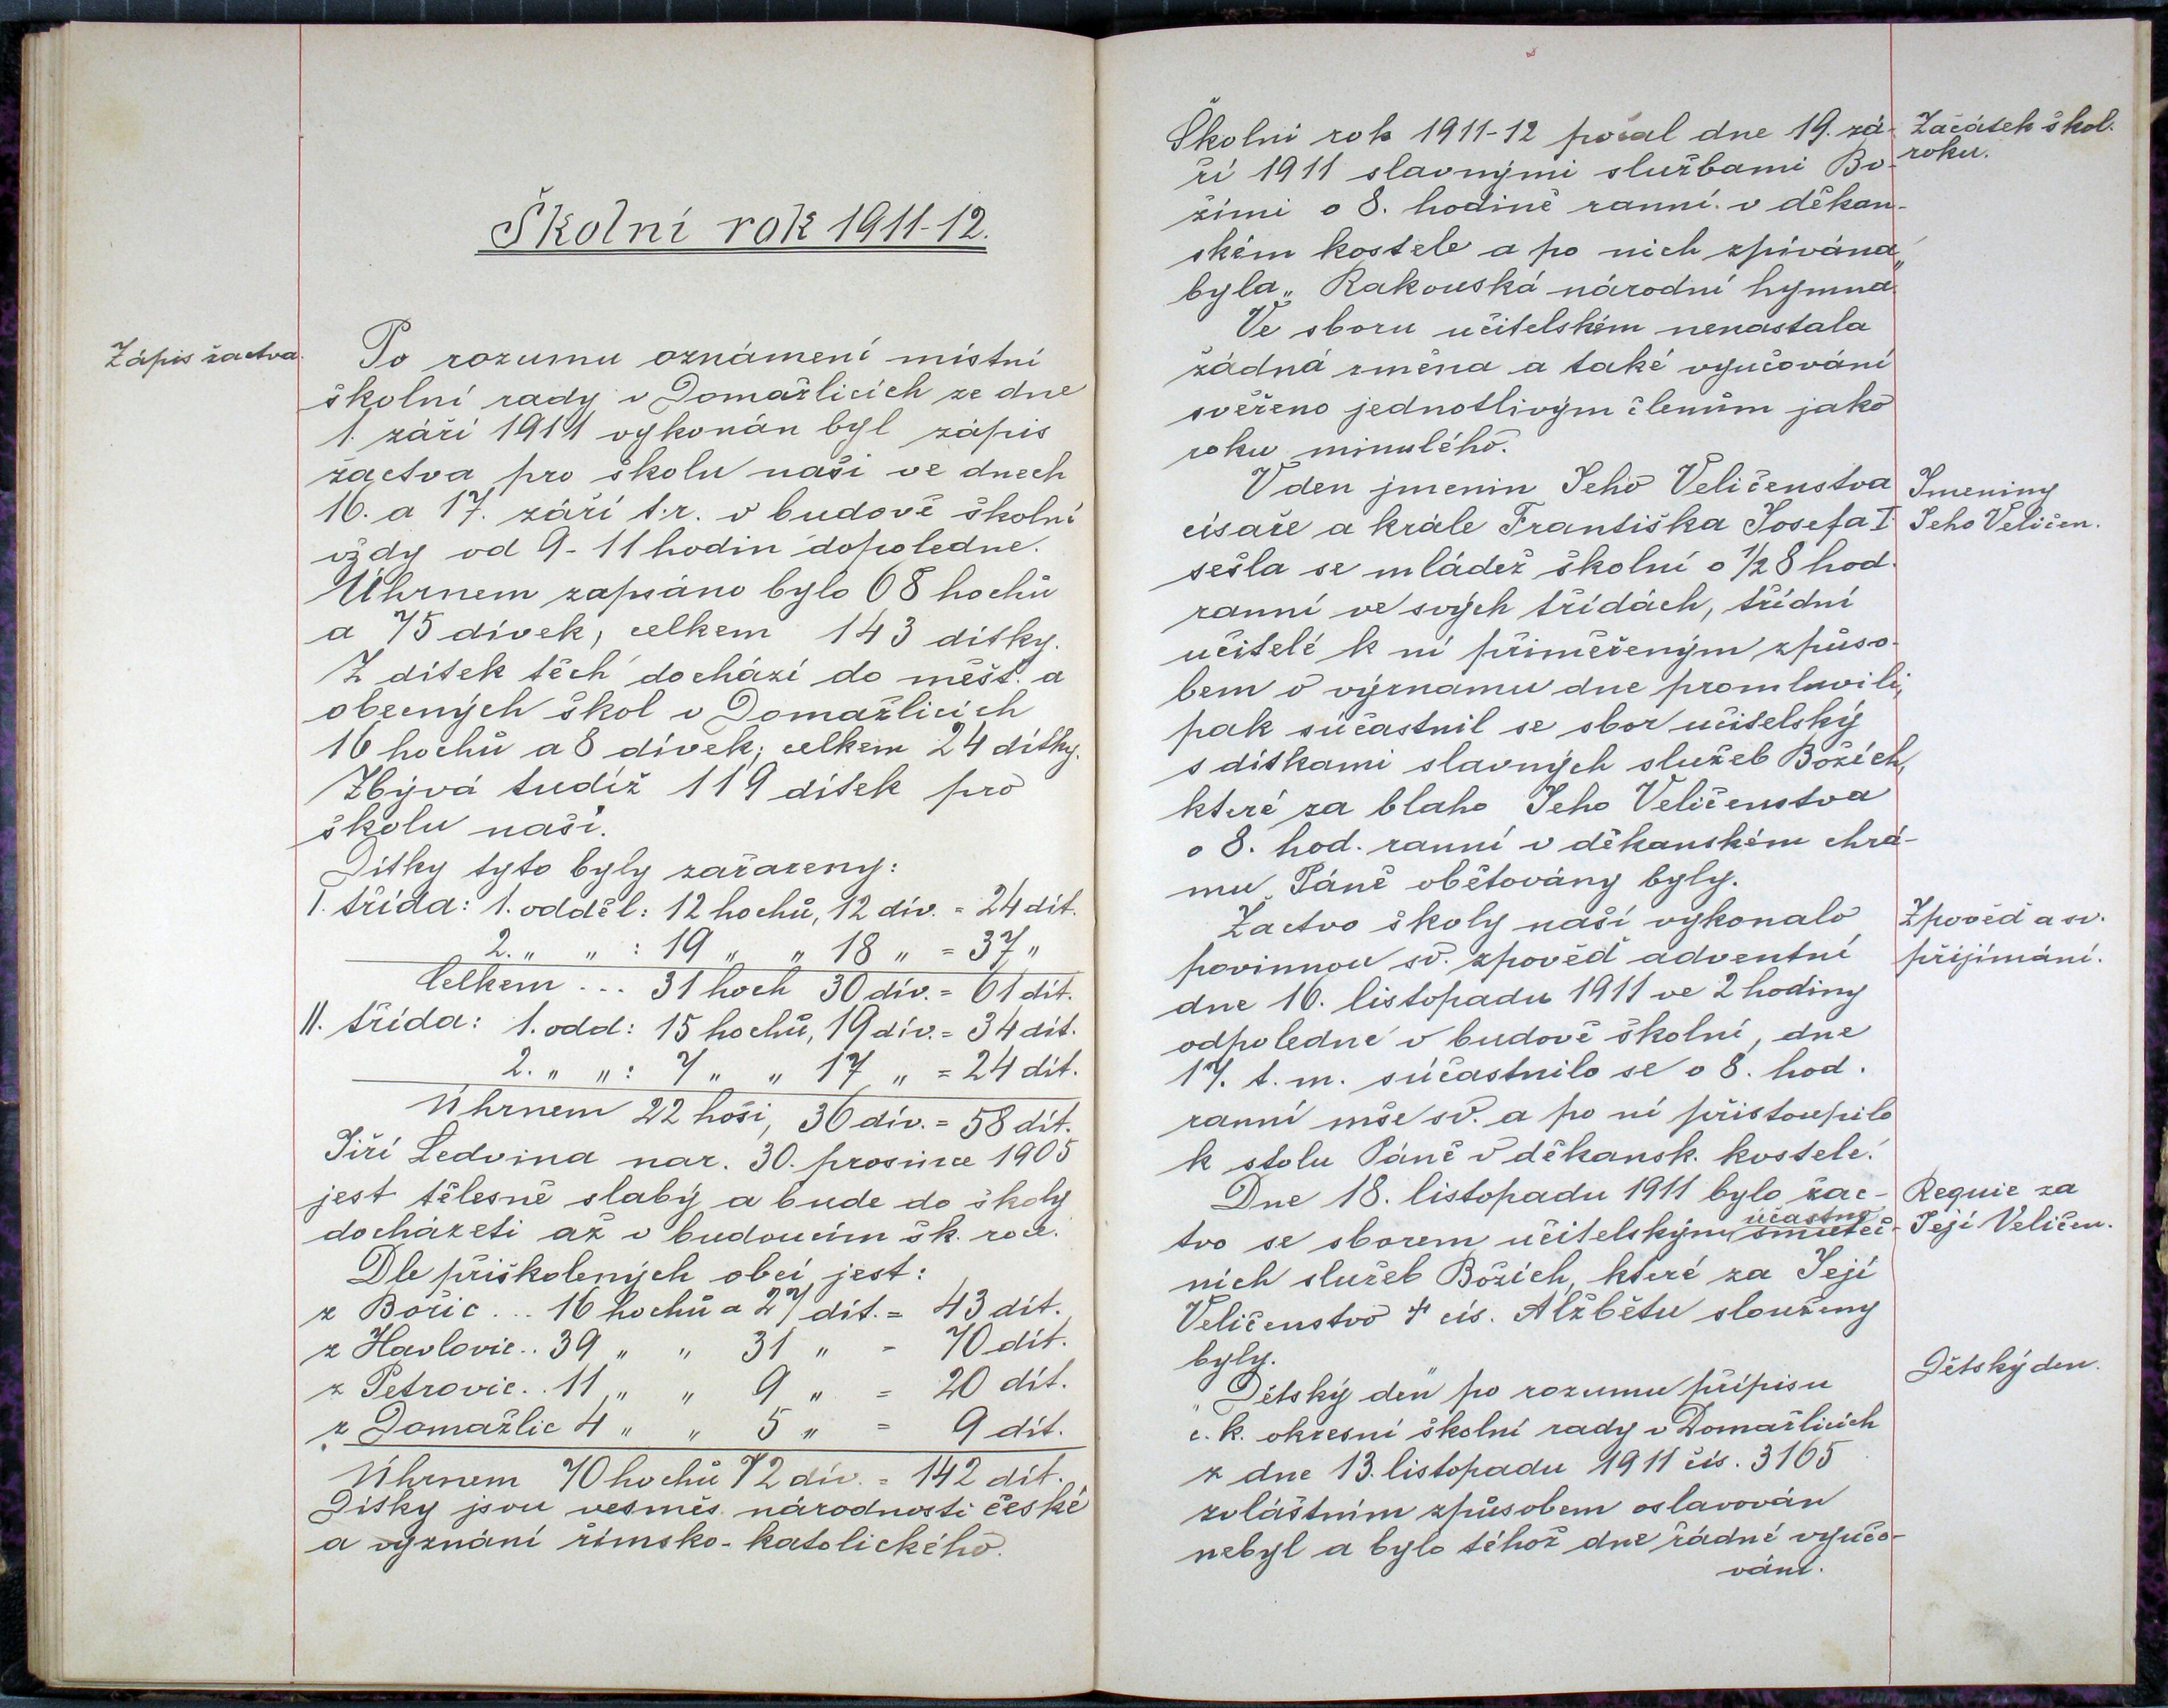 Školní rok 1911-12.
Zápis žactva.
Po rozumu oznámení místní
školní rady v Domažlicích ze dne
1. září 1911 vykonán byl zápis
žactva pro školu naši ve dnech
16. a 17. září t.r. v budově školní
vždy od 9-11 hodin dopoledne.
Úhrnem zapsáno bylo 68 hochů
a 75 dívek, celkem 143 dítky.
Z dítek těch dochází do měšt. a
obecných škol v Domažlicích
16 hochů a 8 dívek; celkem 24 dítky.
Zbývá tudíž 119 dítek pro
školu naši.
Dítky tyto byly zařazeny:
I. třída: 1. odděl: 12 hochů, 12 dív. = 24 dít.
2. " " : 19 " " 18 " = 37 "
Celkem ... 31 hoch 30 dív. = 61 dít.
II. třída: 1. odd: 15 hochů, 19 dív. = 34 dít.
2. " " : 7 " " 17 " = 24 dít.
Úhrnem 22 hoši, 36 dív. = 58 dít.
Jiří Ledvina nar. 30. prosince 1905
jest tělesně slabý a bude do školy
docházeti až v budoucím šk. roce.
Dle přiškolených obcí jest:
z Bořic ... 16 hochů a 27 dít. = 43 dít.
z Havlovic .. 39 " " 31 " = 70 dít.
z Petrovic .. 11 " " 9 " = 20 dít.
z Domažlic 4 " " 5 " = 9 dít.
Úhrnem 70 hochů 72 dív. = 142 dít.
Dítky jsou vesměs národnosti české
a vyznání římsko-katolického.
Školní rok 1911-12 počal dne 19. zá-
ří 1911 slavnými službami Bo-
žími o 8. hodině ranní v děkan-
ském kostele a po nich zpívána
byla „Rakouská národní hymna"
Začátek škol.
roku.
Ve sboru učitelském nenastala
žádná změna a také vyučování
svěřeno jednotlivým členům jako
roku minulého.
V den jmenin Jeho Veličenstva
císaře a krále Františka Josefa I
sešla se mládež školní o 1/2 8 hod.
ranní ve svých třídách, třídní
učitelé k ní přiměřeným způso-
bem o významu dne promluvili,
pak súčastnil se sbor učitelský
s dítkami slavných služeb Božích,
které za blaho Jeho Veličenstva
o 8. hod. ranní v děkanském chrá-
mu Páně obětovány byly.
Jmeniny
Jeho Veličen.
Žactvo školy naší vykonalo
povinnou sv. zpověď adventní
dne 16. listopadu 1911 ve 2 hodiny
odpoledne v budově školní, dne
17. t. m. súčastnilo se o 8. hod.
ranní mše sv. a po ní přistoupilo
k stolu Páně v děkansk. kostele.
Zpověď a sv.
přijímání.
Dne 18. listopadu 1911 bylo žac-
tvo se sborem učitelským účastno smuteč-
ních služeb Božích, které za Její
Veličenstvo † cís. Alžbětu slouženy
byly.
Requie za
Její Veličen.
„Dětský den" po rozumu přípisu
c. k. okresní školní rady v Domažlicích
z dne 13. listopadu 1911 čís. 3165
zvláštním způsobem oslavován
nebyl a bylo téhož dne řádné vyučo-
vání.
Dětský den.